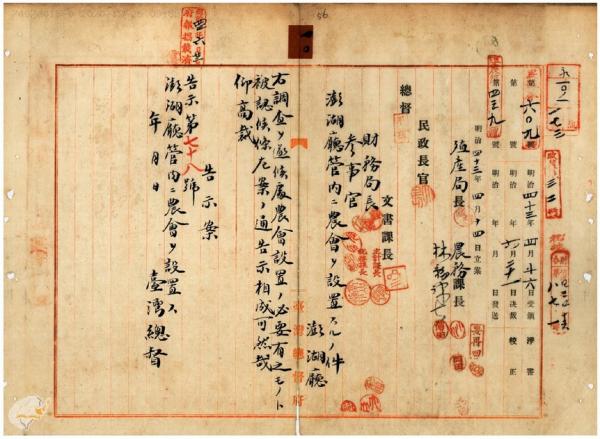 永一〇、一七三
第六〇九號
明治四十三年四月十六日受領
淨書
第四三九號
明治 年六月二十一日決裁
校正
第 號
明治 年 月 日發送
明治四十三年四月十四日立案
殖產局長
農務課長
總督
民政長官
財務局長
參事官
文書課長
澎湖廳管内ニ農會ヲ設置スルノ件
澎湖廳
右調査ヲ遂候處農會設置ノ必要有之モノト
被認候條左案ノ通告示相成可然哉
仰高裁
告示案
告示第七十八號
澎湖廳管内ニ農會ヲ設置ス
年 月 日
臺灣總督
臺灣總督府
56